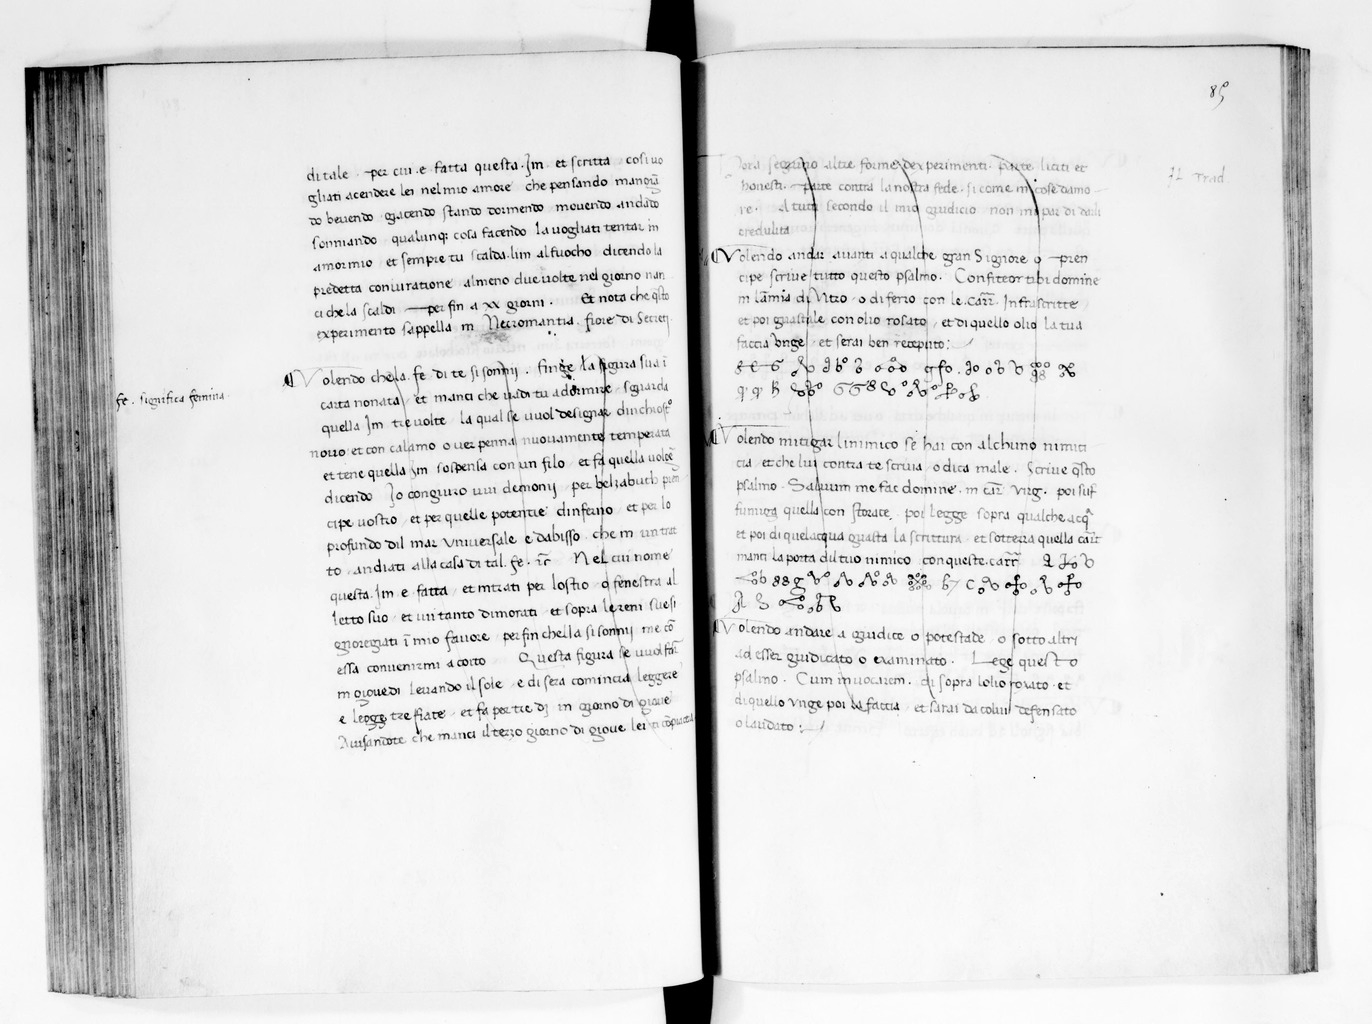 di tale · per cui · e fatta questa · Im et scritta cosi uo
gliati acendere lei nel mio amore che pensando mangiã
do beuendo giacendo stando dormendo mouendo andãdo
sonniando qualunq; cosa facendo la uogliati tentar in
amor mio et sempre tu scalda · lim al fuocho dicendo la
predetta coniuratione almeno due uolte nel giorno nan
ci che la scaldi per fin a xx giorni · Et nota che q̃sto
experimento sappella in Necromantia · fiore di Secreti
Volendo che la · fe · di te si sonnij · finge la figura sua ĩ
fe · significa femina
carta nonata et manci che uadi tu a dormire sguarda
quella Im tre uolte la qual se vuol designar d inchiost°
nouo et con calamo o uer penna nuouamente temperata
et tene quella Im sospensa con un filo et fa quella uolgẽ
dicendo Io congiuro uui demonij per belzabuth prin
cipe uostro et per quelle potentie dinferno et per lo
profundo dil mar vniuersale e dabisso che in un trat
to andiati alla casa di tal · fe · Nel cui nome
questa · Im e fatta et intrati per lostio o fenestra al
letto suo et iui tanto dimorati et sopra le reni sue si
gnoregiati ĩ mio fauore per fin che lla si sonnij me cõ
essa conuenirmi a coito Questa figura se vuol far
in giouedi leuando il sole e di sera comincia leggere
e legge tre fiate et fa per tre dj in giorno di gioue
Auisandote che manci il terzo giorno di gioue lei
85
Hora seguino altre forme dexperimenti · Parte liciti et
71 Trad
honesti · parte contra la nostra fede · si come in cose damo
re · A tuti secondo il mio giudicio non mi par di darli
credulita
Volendo andar auanti a qualche gran Signore o pren
cipe scriue tutto questo psalmo · Confiteor tibi domine
in lamia di Vitro o di ferro con le · Carr · Infrascritte
et poi guastale con olio rosato et di quello olio la tua
faccia Vnge et serai ben receputo :
Volendo mitigar linimico se hai con alchuno nimici
cia et che lui contra te scriua o dica male · Scriue q̃sto
psalmo · Saluum me fac domine · in car · virg · poi suf
fumiga quella con storace · poi legge sopra qualche acq̃
et poi di quelacqua guasta la scrittura et sotterra quella cart
manti la porta dil tuo nimico con queste · carr
Volendo andare a giudice o potestade o sotto altri
ad esser giudicato o examinato · Lege questo
psalmo · Cum inuocarem · di sopra lolio rosato et
di quello vnge poi la faccia et sarai da colui defensato
o laudato :